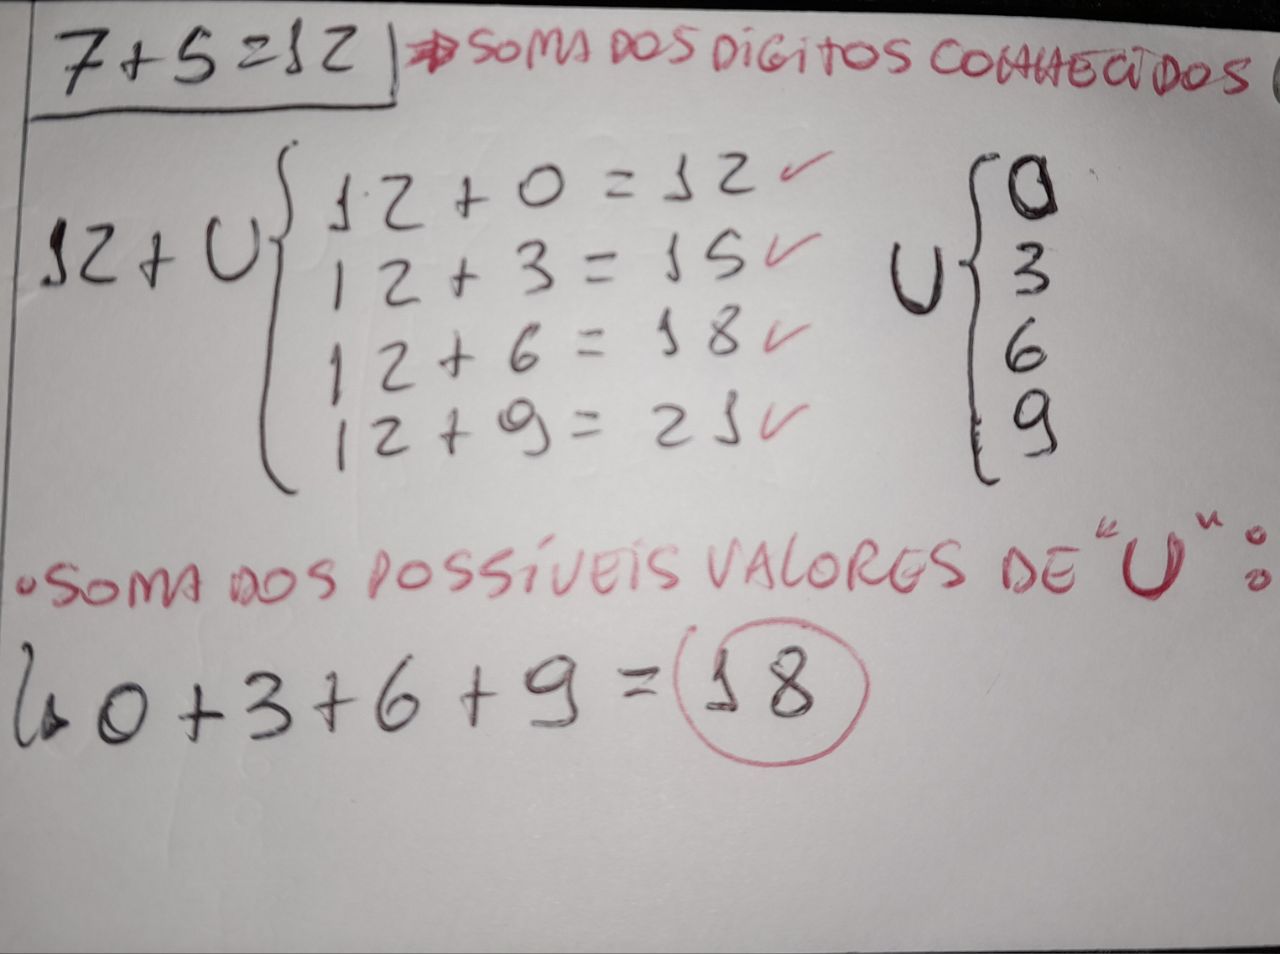 7+5=12 ⇒ SOMA DOS DÍGITOS CONHECIDOS
12+U { 12+0=12 ✓ U { 0
12+3=15 ✓ 3
12+6=18 ✓ 6
12+9=21 ✓ 9
•SOMA DOS POSSÍVEIS VALORES DE "U":
↳ 0+3+6+9=18